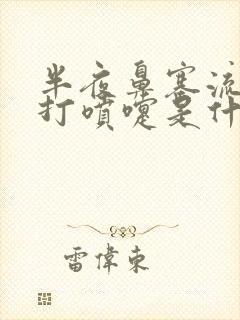 半夜鼻塞流
打噴嚏是什
雷偉東